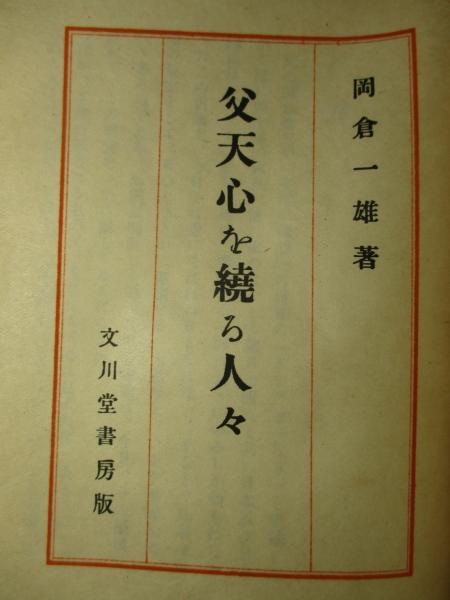 岡倉一雄著
父天心を繞る人々
文川堂書房版